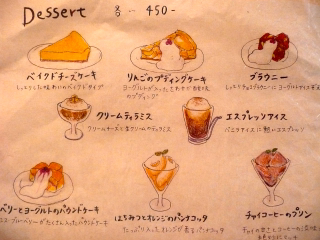 Dessert 各 - 450-
ベイクドチーズケーキ
しっとりした味わいのベイクドタイプ
りんごのプディングケーキ
ヨーグルトが入ったさわやか
のプディング
ブラウニー
クリームティラミス
クリームチーズと生クリームのティラミス
エスプレッソアイス
バニラアイスに熱いエスプレッソ
ベリーとヨーグルトのパウンドケーキ
はちみつとオレンジのパンナコッタ
たっぷり入ったオレンジが香るパンナコッタ
チャイコーヒーのプリン